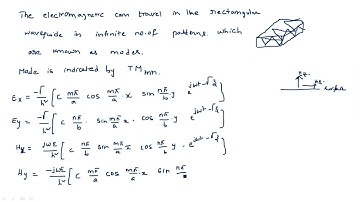 The electromagnetic can travel in the rectangular
waveguide in infinite no. of patterns which
are known as modes.
Mode is indicated by TMmn.
Ex = -Γ/h² [ c mπ/a cos mπ/a · x sin nπ/b y e^(jωt-Γz) ]
Ey = -Γ/h² [ c nπ/b · sin mπ/a x · cos nπ/b y e^(jωt-Γz) ]
Hx = jωε/h² [ c nπ/b sin mπ/a x cos nπ/b y · e^(jωt-Γz) ]
Hy = -jωε/h² [ c mπ/a cos mπ/a x sin nπ